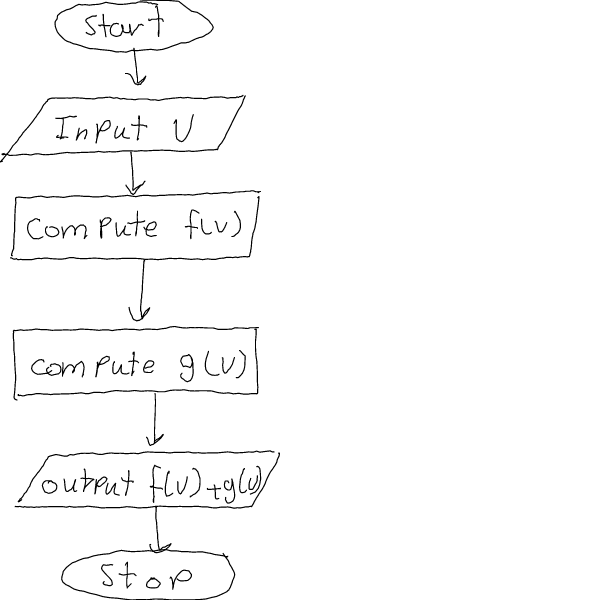 Start
Input V
compute f(v)
compute g(v)
output f(v)+g(v)
Stop